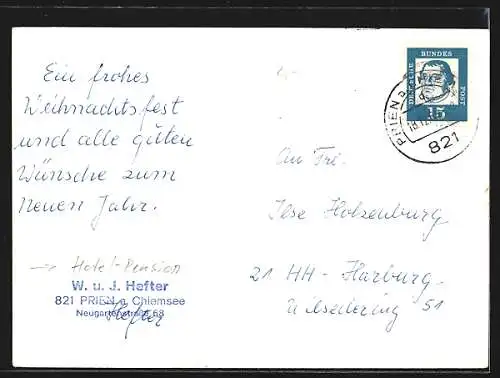 Ein frohes
Weihnachtsfest
und alle guten
Wünsche zum
Neuen Jahr.
→ Hotel-Pension
W. u. J. Hefter
821 PRIEN a. Chiemsee
Neugartenstraße 68
Hefter
DEUTSCHE
BUNDES
POST
15
PRIEN a.
821
An Frl.
Ilse Holzenburg
21 HH - Harburg
51